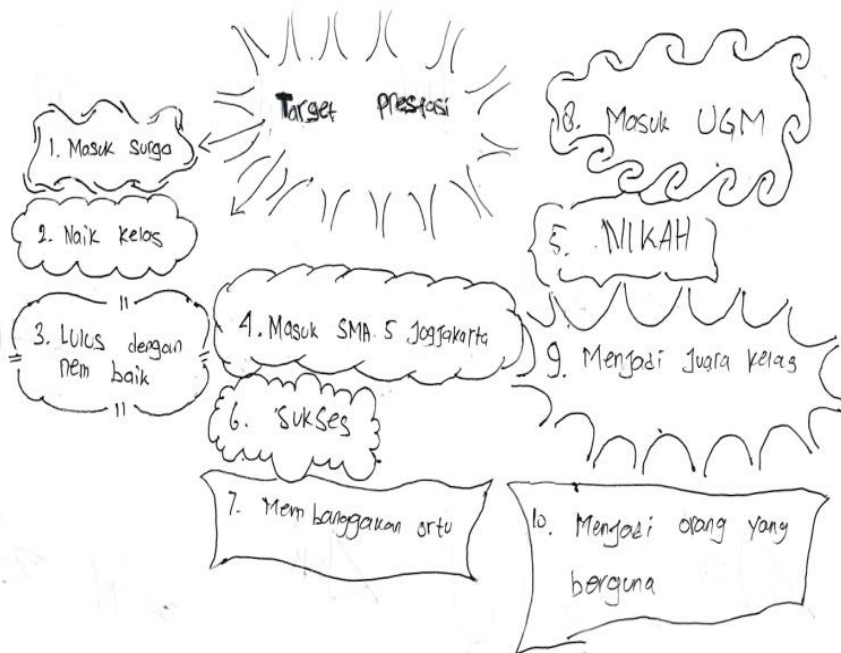 Target prestasi
1. Masuk Surga
2. Naik kelas
3. Lulus dengan
nem baik
4. Masuk SMA 5 Jogjakarta
5. NIKAH
6. Sukses
7. Mem banggakan ortu
8. Masuk UGM
9. Menjadi Juara kelas
10. Menjadi orang yang
berguna